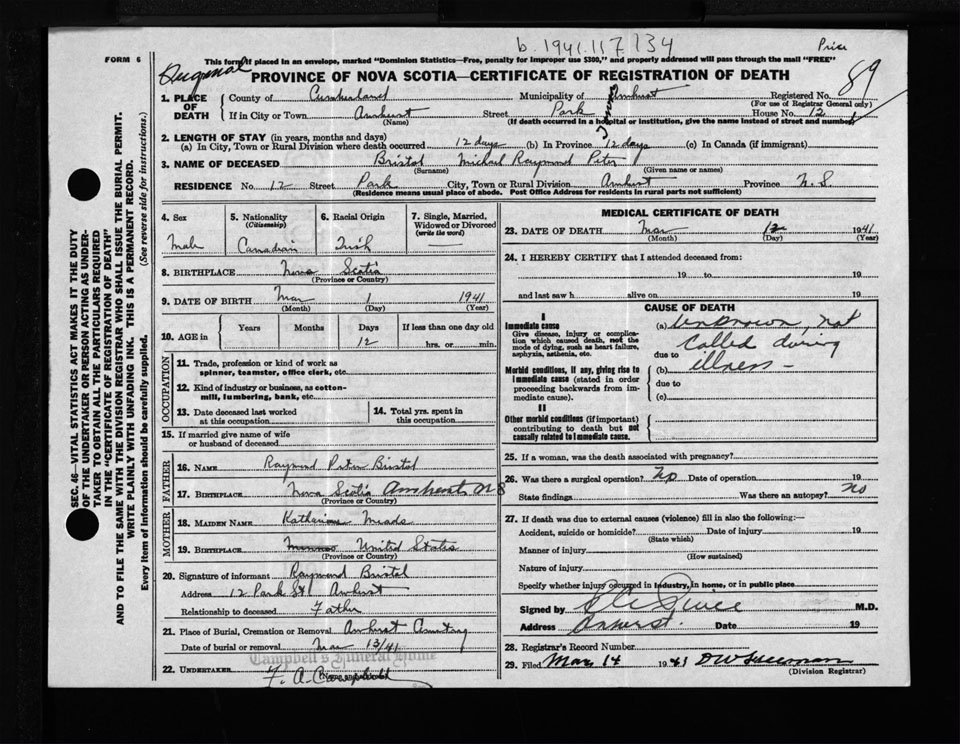 b. 1941.117.134
Price
FORM 6
This form if placed in an envelope, marked "Dominion Statistics—Free, penalty for improper use $300," and properly addressed will pass through the mail "FREE"
Original
PROVINCE OF NOVA SCOTIA—CERTIFICATE OF REGISTRATION OF DEATH
89
1. PLACE OF DEATH
County of Cumberland Municipality of Amherst Registered No.
(For use of Registrar General only)
If in City or Town Amherst Street Park House No. 12
(Name) (If death occurred in a hospital or institution, give the name instead of street and number)
2. LENGTH OF STAY (in years, months and days)
(a) In City, Town or Rural Division where death occurred 12 days (b) In Province 12 days (c) In Canada (if immigrant)
3. NAME OF DECEASED Bristol Michael Raymond Peter
(Surname) (Given name or names)
RESIDENCE No. 12 Street Park City, Town or Rural Division Amherst Province N.S.
(Residence means usual place of abode. Post Office Address for residents in rural parts not sufficient)
4. Sex
Male
5. Nationality
(Citizenship)
Canadian
6. Racial Origin
Irish
7. Single, Married, Widowed or Divorced
(write the word)
8. BIRTHPLACE Nova Scotia
(Province or Country)
9. DATE OF BIRTH Mar 1 1941
(Month) (Day) (Year)
10. AGE in
Years Months Days If less than one day old
12 hrs. or min.
OCCUPATION
11. Trade, profession or kind of work as spinner, teamster, office clerk, etc.
12. Kind of industry or business, as cotton-mill, lumbering, bank, etc.
13. Date deceased last worked at this occupation
14. Total yrs. spent in this occupation
15. If married give name of wife or husband of deceased
FATHER
16. NAME Raymond Peter Bristol
17. BIRTHPLACE Nova Scotia Amherst N S
(Province or Country)
MOTHER
18. MAIDEN NAME Katherine Meads
19. BIRTHPLACE United States
(Province or Country)
20. Signature of informant Raymond Bristol
Address 12 Park St Amherst
Relationship to deceased Father
21. Place of Burial, Cremation or Removal Amherst Cemetery
Date of burial or removal Mar 13/41
Campbell's Funeral Home
22. UNDERTAKER F. A. Campbell
MEDICAL CERTIFICATE OF DEATH
23. DATE OF DEATH Mar 12 1941
(Month) (Day) (Year)
24. I HEREBY CERTIFY that I attended deceased from:
19 to 19
and last saw h alive on 19
CAUSE OF DEATH
I
Immediate cause
Give disease, injury or complication which caused death, not the mode of dying, such as heart failure, asphyxia, asthenia, etc.
(a) Unknown, not
called during
due to
illness —
Morbid conditions, if any, giving rise to immediate cause (stated in order proceeding backwards from immediate cause).
(b)
due to
(c)
II
Other morbid conditions (if important) contributing to death but not causally related to immediate cause.
25. If a woman, was the death associated with pregnancy?
26. Was there a surgical operation? No Date of operation 19
State findings Was there an autopsy? No
27. If death was due to external causes (violence) fill in also the following:—
Accident, suicide or homicide? Date of injury 19
(State which)
Manner of injury
(How sustained)
Nature of injury
Specify whether injury occurred in Industry, in home, or in public place
Signed by Price M.D.
Address Amherst. Date 19
28. Registrar's Record Number
29. Filed Mar 14 1941
(Division Registrar)
SEC. 46—VITAL STATISTICS ACT MAKES IT THE DUTY
OF THE UNDERTAKER OR PERSON ACTING AS UNDER-
TAKER TO OBTAIN ALL THE PARTICULARS REQUIRED
IN THE "CERTIFICATE OF REGISTRATION OF DEATH"
AND TO FILE THE SAME WITH THE DIVISION REGISTRAR WHO SHALL ISSUE THE BURIAL PERMIT.
WRITE PLAINLY WITH UNFADING INK. THIS IS A PERMANENT RECORD.
Every item of information should be carefully supplied. (See reverse side for instructions.)